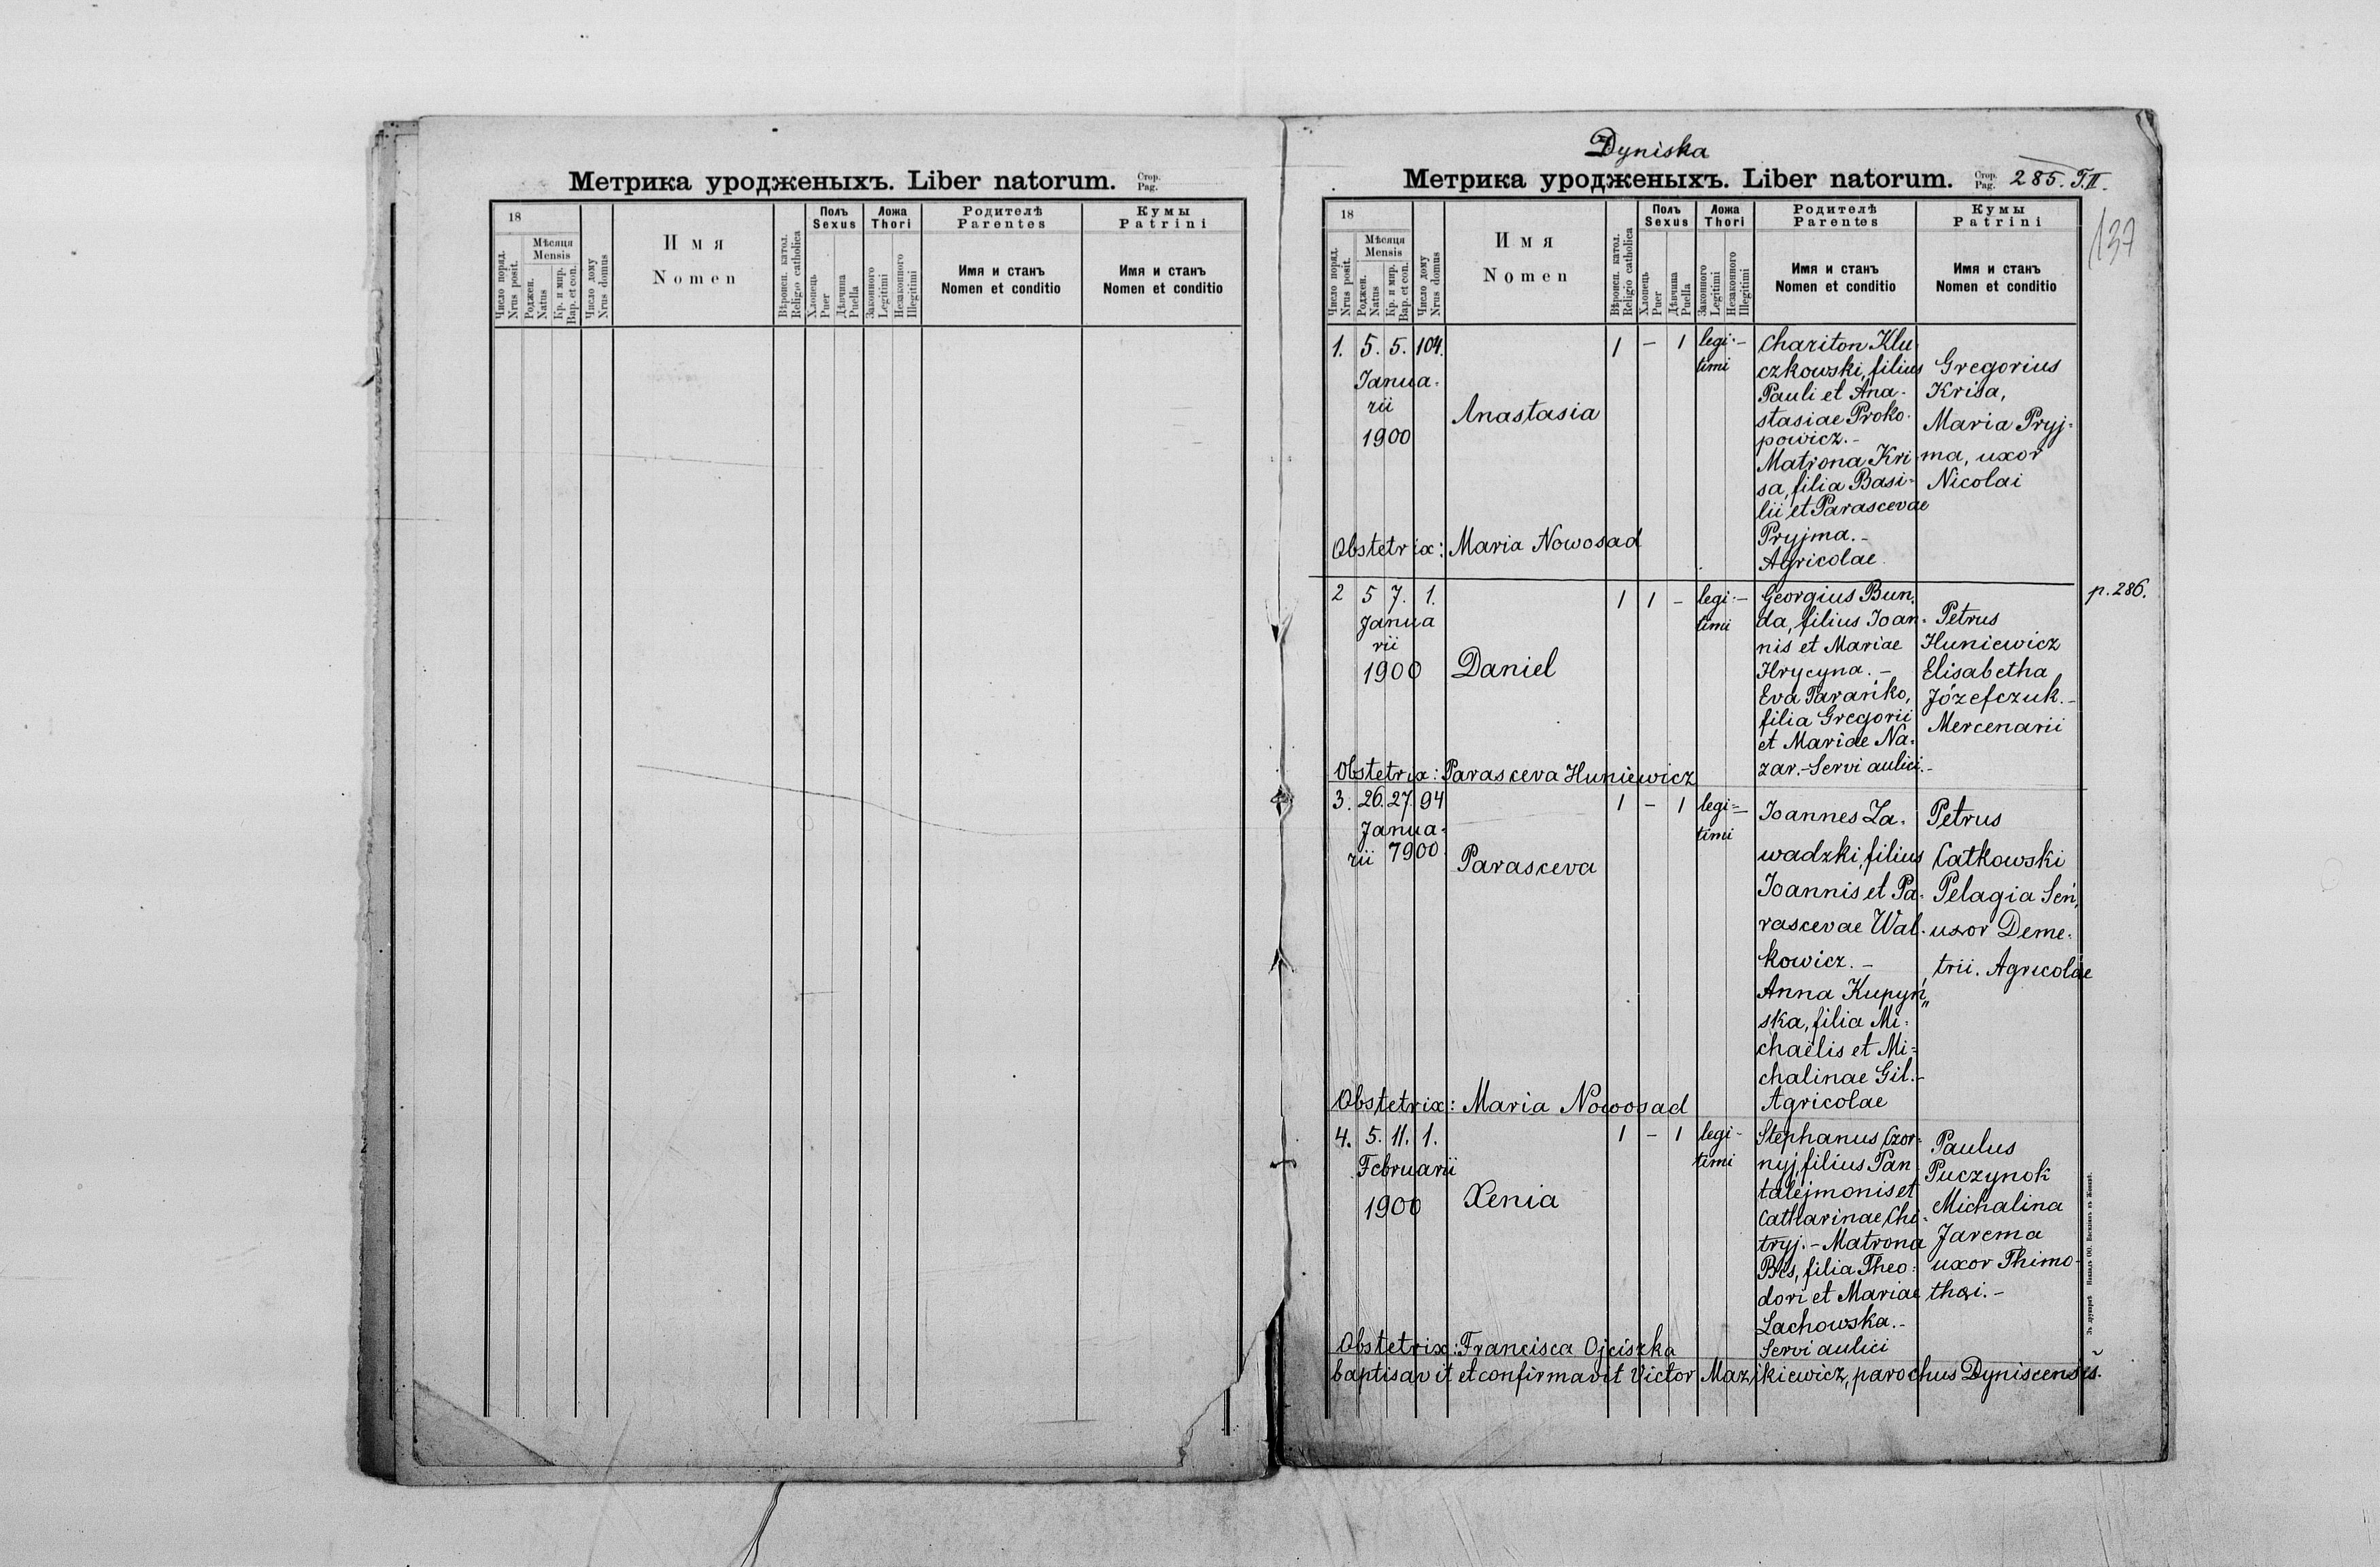 Метрика уродженыхъ. Liber natorum. Стор. Pag.
18
Число поряд. Nrus posit.
Мѣсяця Mensis
Роджен. Natus
Кр. и мир. Bap. et con.
Число дому Nrus domus
Имя
Nomen
Вѣроисп. катол. Religio catholica
Полъ Sexus
Хлопець Puer
Дѣвчина Puella
Ложа Thori
Законного Legitimi
Незаконного Illegitimi
Родителѣ
Parentes
Имя и станъ
Nomen et conditio
Кумы
Patrini
Имя и станъ
Nomen et conditio
Dyniska
Метрика уродженыхъ. Liber natorum. Стор. Pag. 285. T.II.
137
18
Число поряд. Nrus posit.
Мѣсяця Mensis
Роджен. Natus
Кр. и мир. Bap. et con.
Число дому Nrus domus
Имя
Nomen
Вѣроисп. катол. Religio catholica
Полъ Sexus
Хлопець Puer
Дѣвчина Puella
Ложа Thori
Законного Legitimi
Незаконного Illegitimi
Родителѣ
Parentes
Имя и станъ
Nomen et conditio
Кумы
Patrini
Имя и станъ
Nomen et conditio
1. 5. 5. 104.
Janua-
rii
1900
Anastasia
1 – 1 legi-
timi
Chariton Klu
czkowski, filius
Pauli et Ana-
stasiae Proko-
powicz.-
Matrona Kri
sa, filia Basi-
lii et Parascevae
Pryjma.-
Agricolae
Gregorius
Krisa,
Maria Pryj-
ma, uxor
Nicolai
Obstetrix: Maria Nowosad
2 5 7. 1.
Janua
rii
1900
Daniel
1 1 – legi-
timi
Georgius Bun-
da, filius Joan-
nis et Mariae
Hrycyna.-
Eva Parańko,
filia Gregorii
et Mariae Na-
zar.- Servi aulici.-
Petrus
Huniewicz
Elisabetha
Józefczuk.-
Mercenarii
p. 286.
Obstetrix: Parasceva Huniewicz
3. 26. 27. 94
Janua-
rii 1900
Parasceva
1 – 1 legi=
timi
Joannes Za-
wadzki, filius
Joannis et Pa-
rascevae Wal-
kowicz.-
Anna Kupyń„
ska, filia Mi-
chaëlis et Mi-
chalinae Gil.-
Agricolae
Petrus
Catkowski
Pelagia Seń,
uxor Deme-
trii. Agricolae
Obstetrix: Maria Nowosad
4. 5. 11. 1.
Februarii
1900
Xenia
1 – 1 legi-
timi
Stephanus Czor-
nyj, filius Pan
talejmonis et
Catharinae Chi-
tryj.- Matrona
Bis, filia Theo-
dori et Mariae
Lachowska.-
Servi aulici
Paulus
Puczynok
Michalina
Jarema
uxor Thimo-
thei.-
Obstetrix: Francisca Ojciszka
baptisavit et confirmavit Victor Mazikiewicz, parochus Dyniscensis.